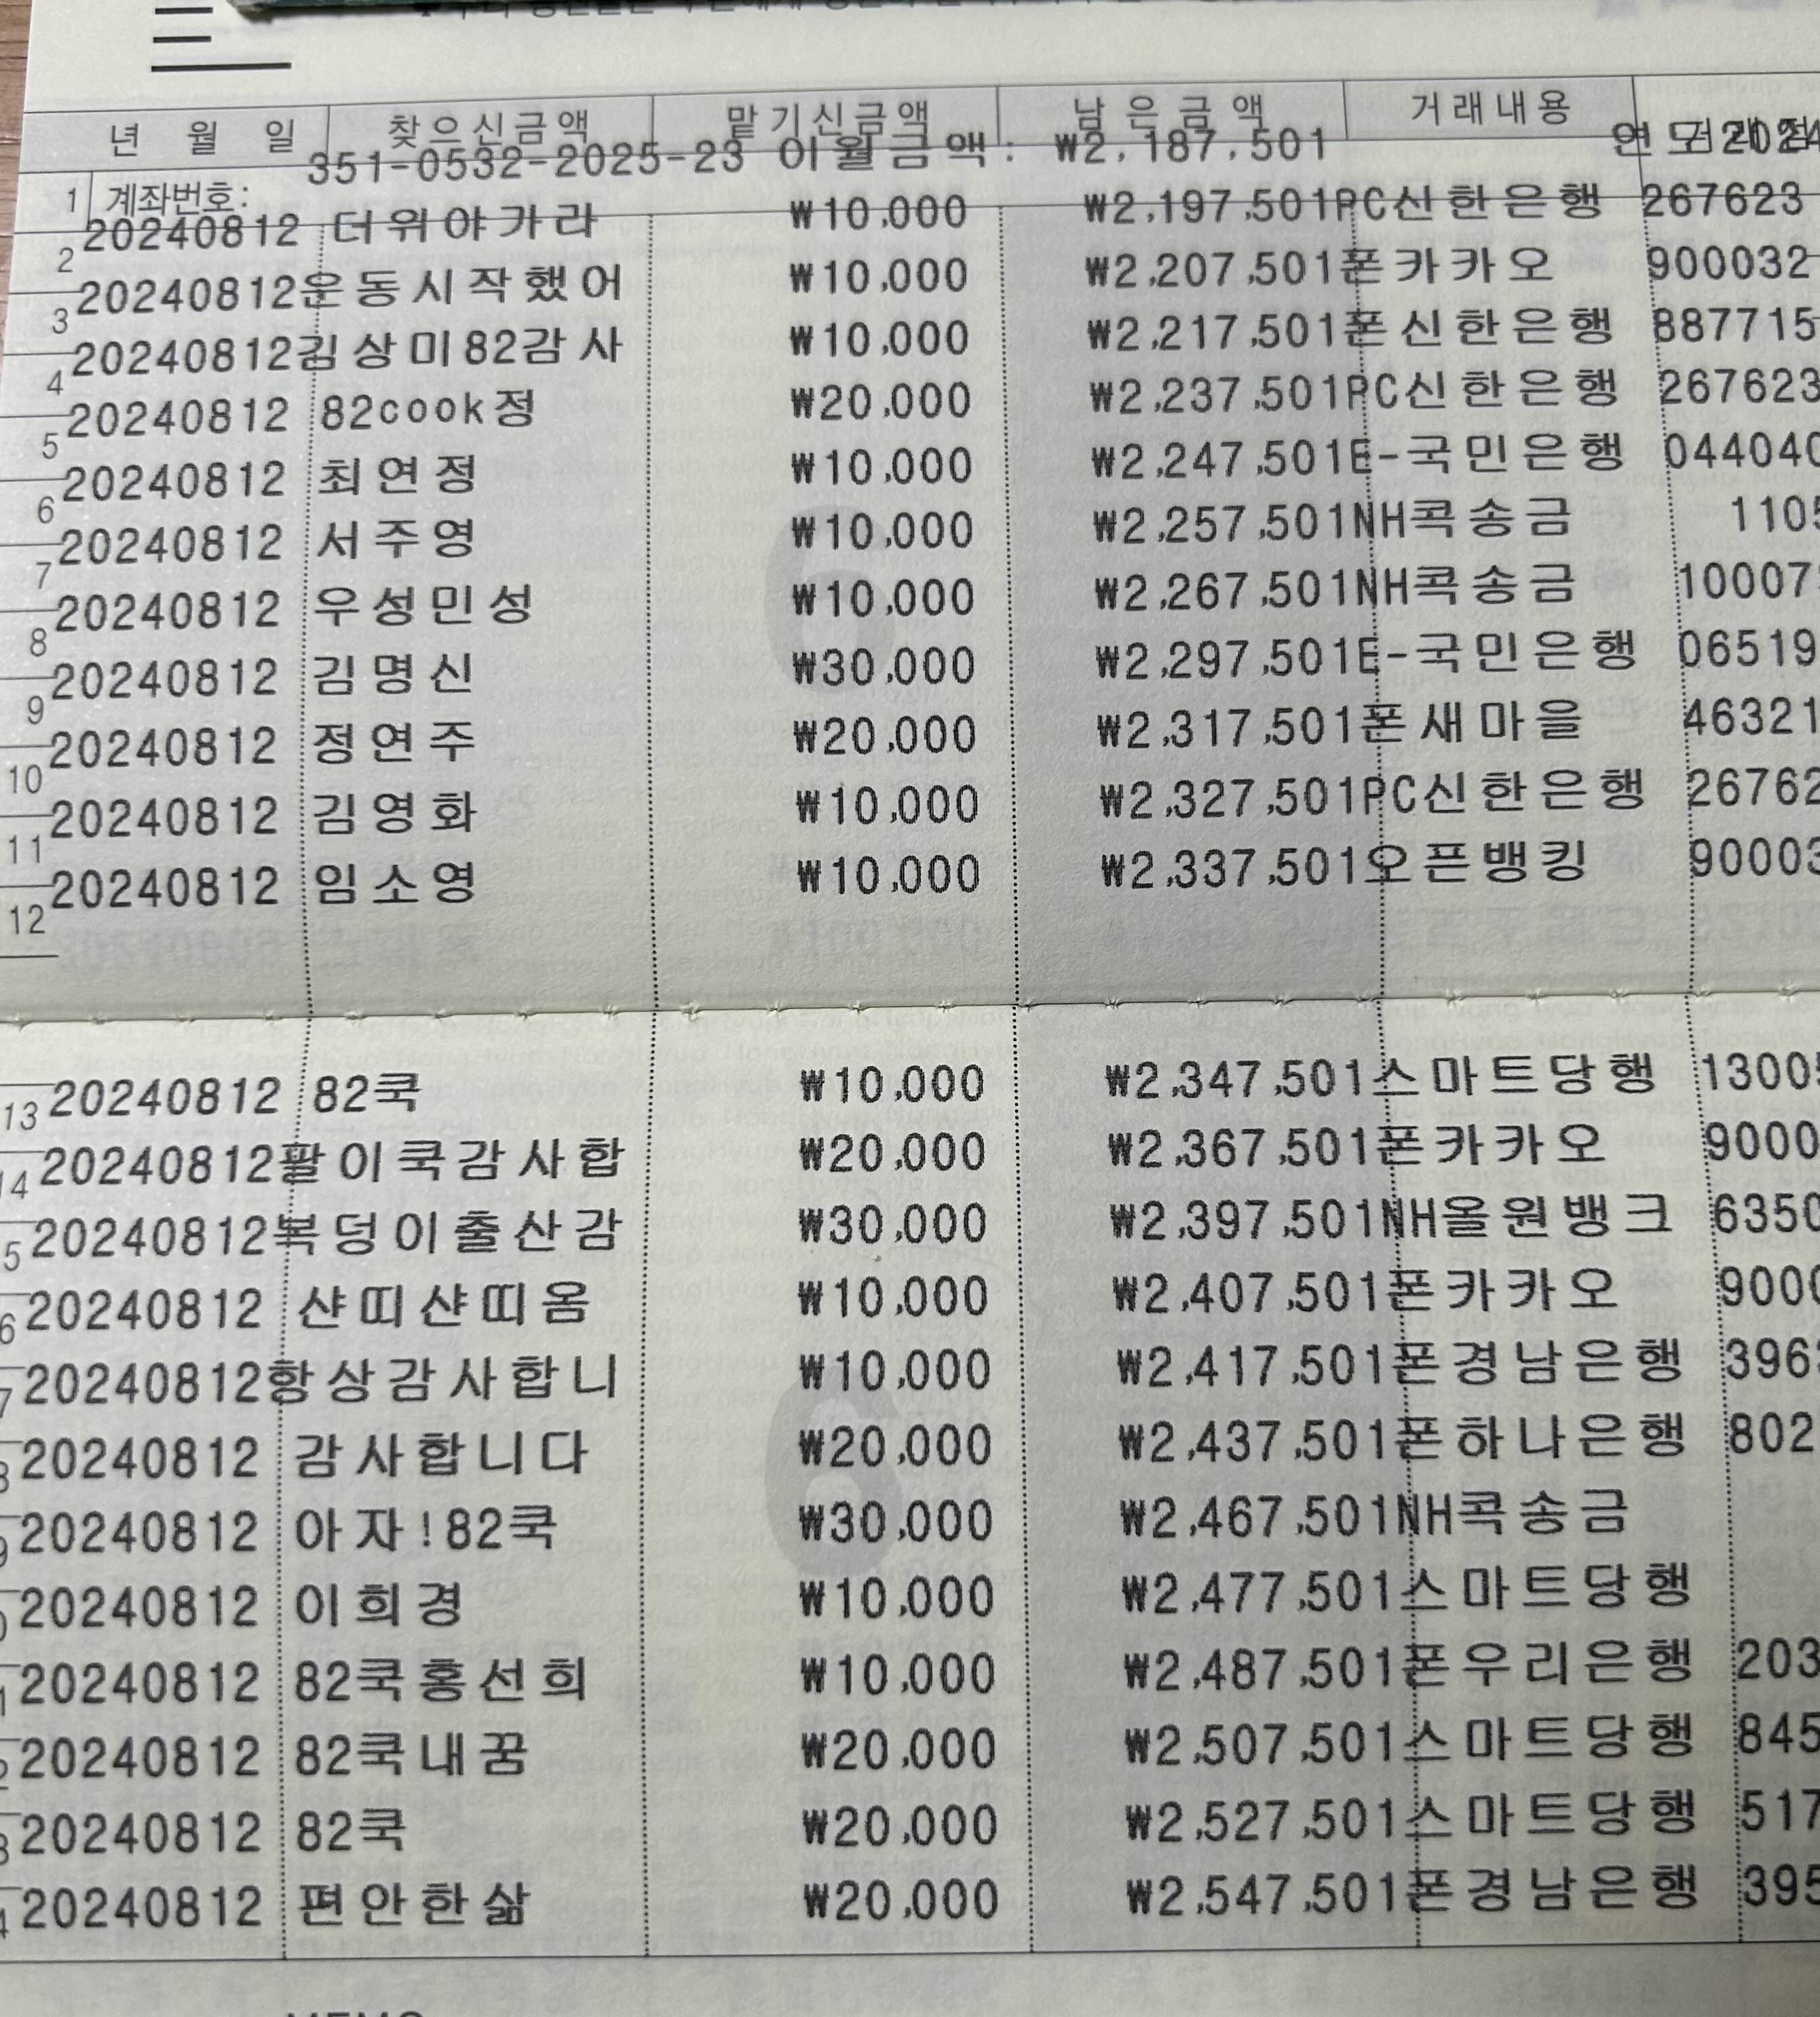 년 월 일 찾으신금액 맡기신금액 남은금액 거래내용
351-0532-2025-23 이월금액: ₩2,187,501 연도:2024
1 계좌번호:
2 20240812 더위야가라 ₩10,000 ₩2,197,501 PC신한은행 267623
3 20240812 운동시작했어 ₩10,000 ₩2,207,501 폰카카오 900032
4 20240812 김상미82감사 ₩10,000 ₩2,217,501 폰신한은행 887715
5 20240812 82cook정 ₩20,000 ₩2,237,501 PC신한은행 267623
6 20240812 최연정 ₩10,000 ₩2,247,501 E-국민은행 044040
7 20240812 서주영 ₩10,000 ₩2,257,501 NH콕송금 1105
8 20240812 우성민성 ₩10,000 ₩2,267,501 NH콕송금 10007
9 20240812 김명신 ₩30,000 ₩2,297,501 E-국민은행 06519
10 20240812 정연주 ₩20,000 ₩2,317,501 폰새마을 46321
11 20240812 김영화 ₩10,000 ₩2,327,501 PC신한은행 26762
12 20240812 임소영 ₩10,000 ₩2,337,501 오픈뱅킹 90003
13 20240812 82쿡 ₩10,000 ₩2,347,501 스마트당행 1300
14 20240812 팔이쿡감사합 ₩20,000 ₩2,367,501 폰카카오 9000
5 20240812 복덩이출산감 ₩30,000 ₩2,397,501 NH올원뱅크 6350
6 20240812 샨띠샨띠옴 ₩10,000 ₩2,407,501 폰카카오 9000
7 20240812 항상감사합니 ₩10,000 ₩2,417,501 폰경남은행 396
8 20240812 감사합니다 ₩20,000 ₩2,437,501 폰하나은행 802
9 20240812 아자!82쿡 ₩30,000 ₩2,467,501 NH콕송금
0 20240812 이희경 ₩10,000 ₩2,477,501 스마트당행
1 20240812 82쿡홍선희 ₩10,000 ₩2,487,501 폰우리은행 203
2 20240812 82쿡내꿈 ₩20,000 ₩2,507,501 스마트당행 845
3 20240812 82쿡 ₩20,000 ₩2,527,501 스마트당행 517
4 20240812 편안한삶 ₩20,000 ₩2,547,501 폰경남은행 395